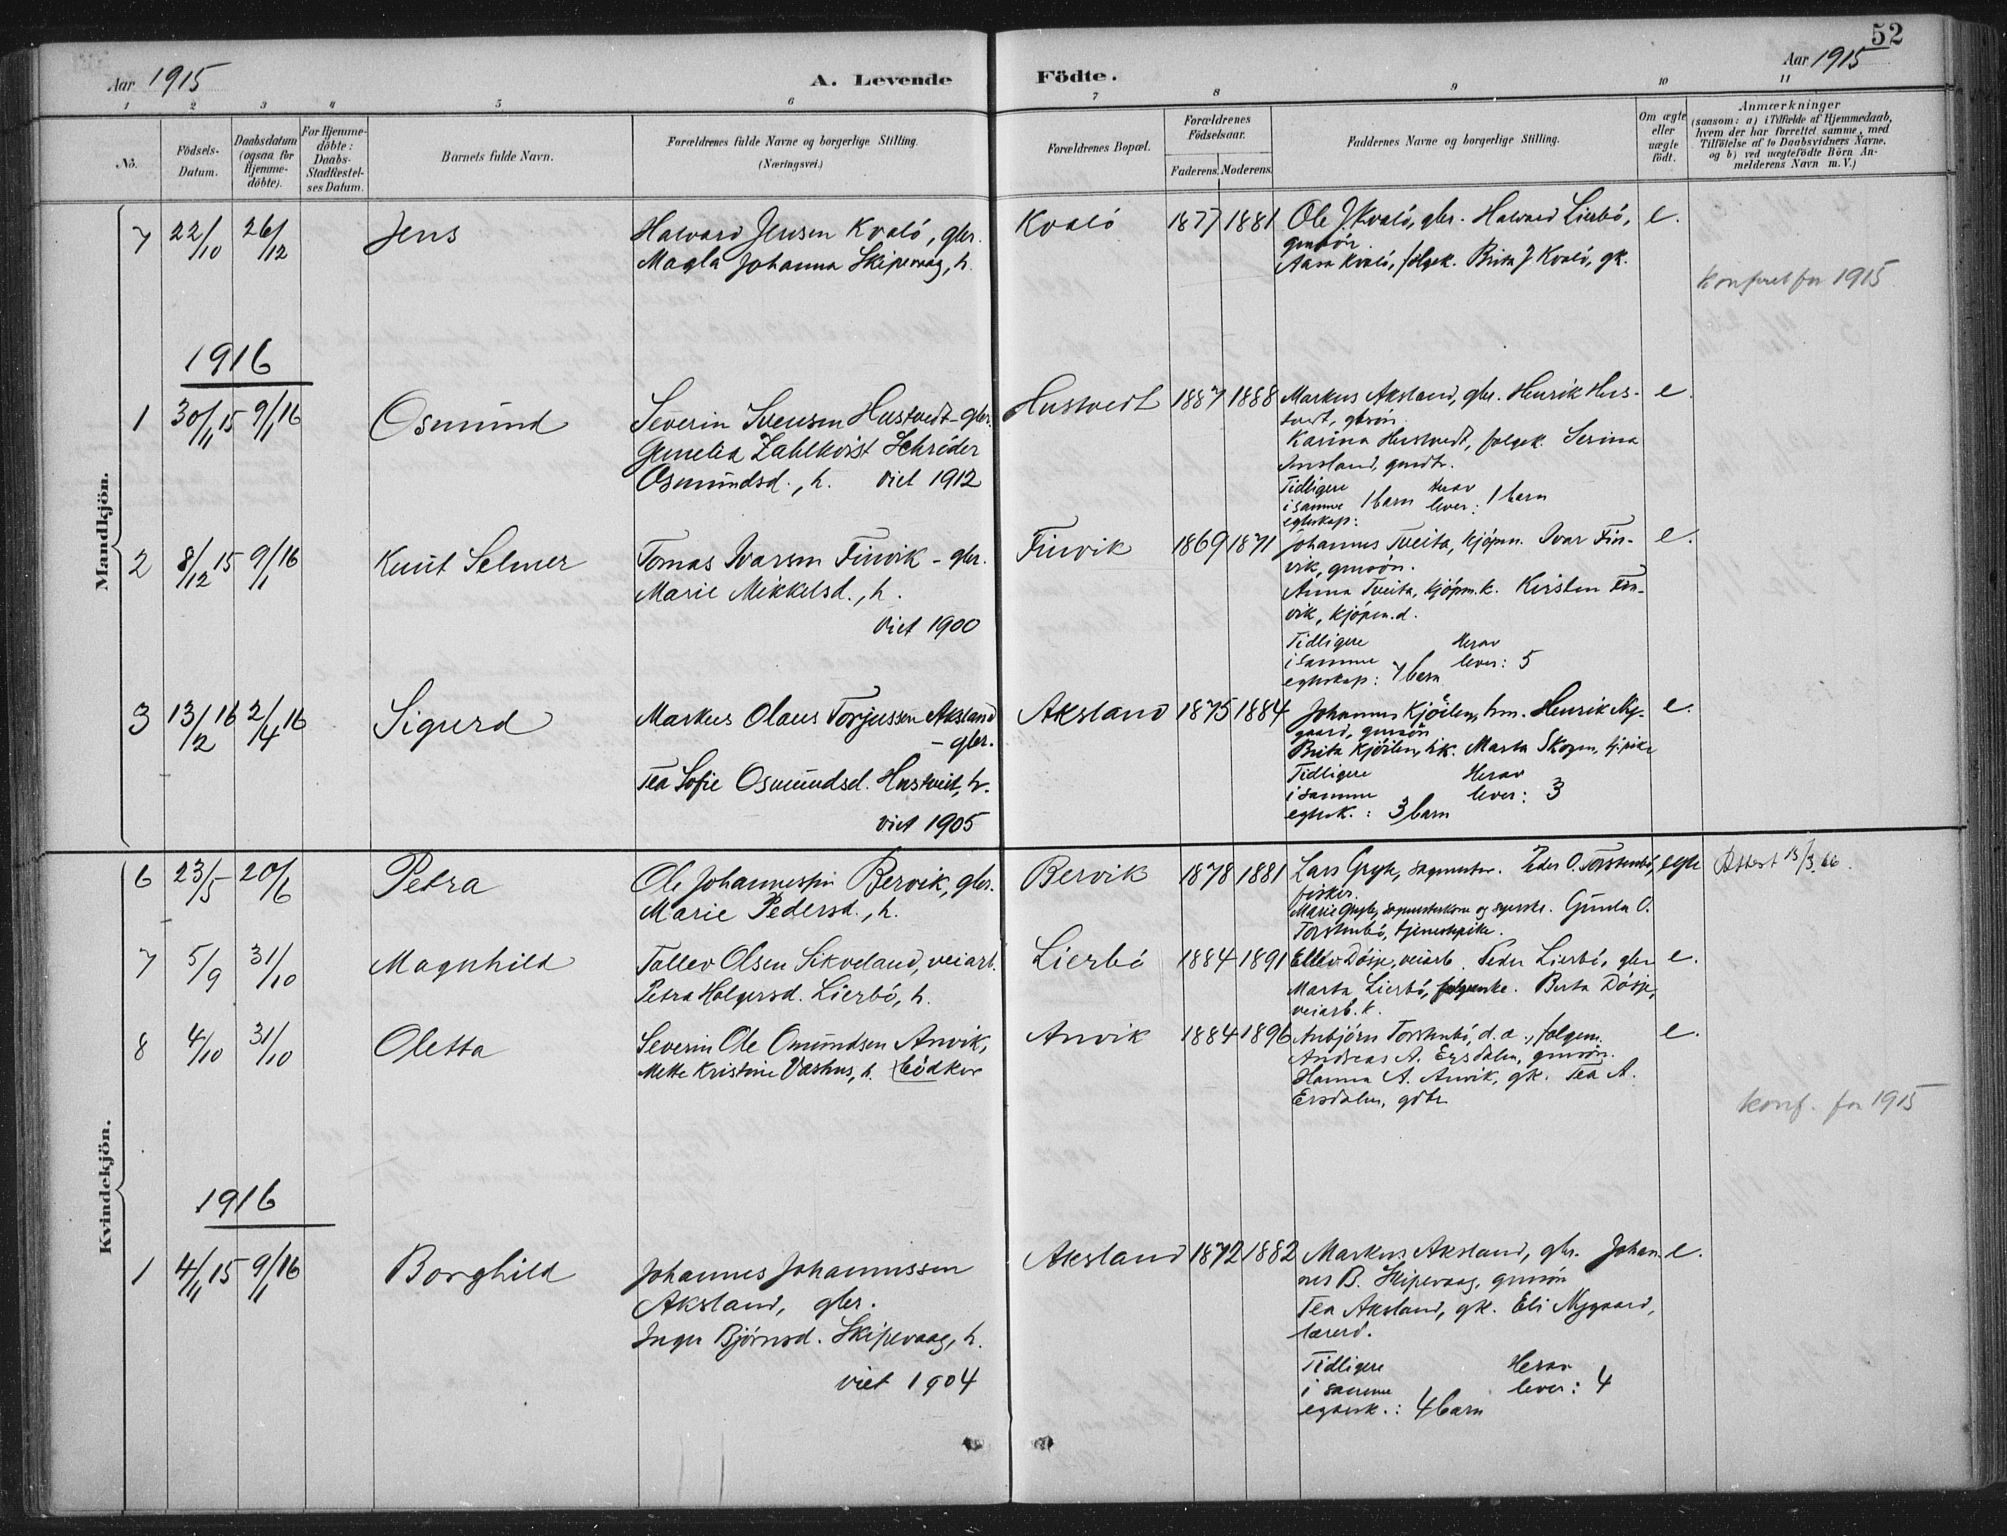 52
Aar 1915
A. Levende
Födte.
Aar 1915
1 2 3 4 5 6 7 8 9 10 11
No.
Födsels-
Datum.
Daabsdatum
(ogsaa for
Hjemme-
döbte).
For Hjemme-
döbte:
Daabs-
Stadfæstel-
ses Datum.
Barnets fulde Navn.
Forældrenes fulde Navne og borgerlige Stilling.
(Næringsvei.)
Forældrenes Bopæl.
Forældrenes
Födselsaar.
Faderens. Moderens.
Faddernes Navne og borgerlige Stilling.
Om ægte
eller
uægte
födt.
Anmærkninger
(saasom: a) i Tilfælde af Hjemmedaab,
hvem der har forrettet samme, med
Tilföielse af to Daabsvidners Navne,
og b) ved uægtefödte Börn An-
melderens Navn m. V.)
Mandkjön.
7 22/10 26/12 Jens
Halvard Jensen Kvalö, gbr.
Magla Johanna Skipevaag, h.
Kvalö 1877 1881
Ole J. Kvalö, gbr. Halvard Lierbö,
gmsön.
Aasa Kvalö, følgek. Brita J. Kvalö, gk.
e.
konferet for 1915
1916
1 30/11 15 9/1 16 Osmund
Severin Svensen Hustvedt - gbr.
Gunelia Zahlkvist Schrøder
Osmundsd., h. viet 1912
Hustvedt 1887 1888
Markus Aksland, gbr. Henrik Hus-
tvedt, gbrsön.
Karina Hustvedt, følgek. Serina
Aksland, gmdtr.
Tidligere
i samme 1 barn
egteskap:
Herav
lever: 1 barn
e.
2 8/12 15 9/1 16 Knut Selmer
Tomas Ivarsen Finvik - gbr.
Marie Mikkelsd., h.
viet 1900
Finvik 1869 1871
Johannes Tveita, kjöpm. Ivar Fin-
vik, gmsön.
Anna Tveita, kjöpm.k. Kirsten Fin-
vik, kjöpm.d.
Tidligere
i samme
egteskap: 7 barn
Herav
lever: 5
e.
3 13/2 16 2/4 16 Sigurd
Markus Olaus Torjussen Aksland
- gbr.
Tea Sofie Osmundsd. Hustveit, h.
viet 1905
Aksland 1875 1884
Johannes Kjöilen, hm. Henrik Ny-
gaard, gmsön
Brita Kjöilen, hk. Marta Skogen, tj.pike
Tidligere
i samme
egtesk.: 3 barn
Herav
lever: 3
e.
Kvindekjön.
6 23/5 20/6 Petra
Ole Johannessen Bervik, gbr.
Marie Pedersd., h.
Bervik 1878 1881
Lars Gryte, sagmester. Peder O. Torstenbö,
fisker.
Marie Gryte, sagmesterkone og syerske. Gunla O.
Torstenbö, tjenestepike.
egte
Attest 13/3 66
7 5/9 31/10 Magnhild
Tollev Olsen Sikveland, veiarb.
Petra Holgersd. Lierbö, h.
Lierbö 1884 1891
Ellev Dösje, veiarb. Peder Lierbö, gbr
Marta Lierbö, følgeenke. Berta Dösje,
veiarb. k.
e.
8 4/10 31/10 Oletta
Severin Ole Omundsen Anvik,
Mette Kristine Vashus, h. bödker
Anvik 1884 1896
Anbjörn Torstenbö, d. a., følgem.
Andreas A. Ersdalen, gmsön.
Hanna A. Anvik, gk. Tea A.
Ersdalen, gdtr
e.
konf. for 1915
1916
1 4/11 15 9/1 16 Borghild
Johannes Johannessen
Aksland, gbr.
Inger Björnsd. Skipevaag, h.
viet 1904
Aksland 1872 1882
Markus Aksland, gbr. Johan-
nes B. Skipevaag, gmsön
Tea Aksland, gk. Eli Nygaard,
lærerd.
Tidligere
i samme
egtesk.: 4 barn
Herav
lever: 4
e.